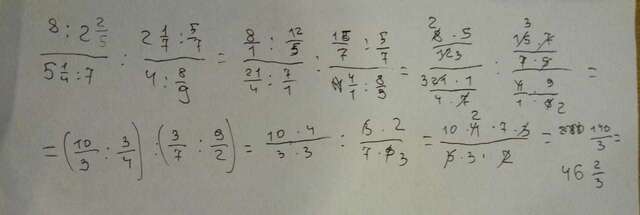 8 : 2 2/5 / 5 1/4 : 7 : 2 1/7 : 5/7 / 4 : 8/9 = 8/1 : 12/5 / 21/4 : 7/1 : 15/7 : 5/7 / 4/1 : 8/9 = 2 8 · 5 / 12 3 / 3 21 · 1 / 4 · 7 : 3 15 · 7 / 7 · 5 / 4 · 9 / 1 · 8 2 =
= (10/3 : 3/4) : (3/7 : 9/2) = 10 · 4 / 3 · 3 : 3 · 2 / 7 · 9 3 = 10 · 4 2 · 7 · 3 / 3 · 3 · 2 = 140/3 =
46 2/3